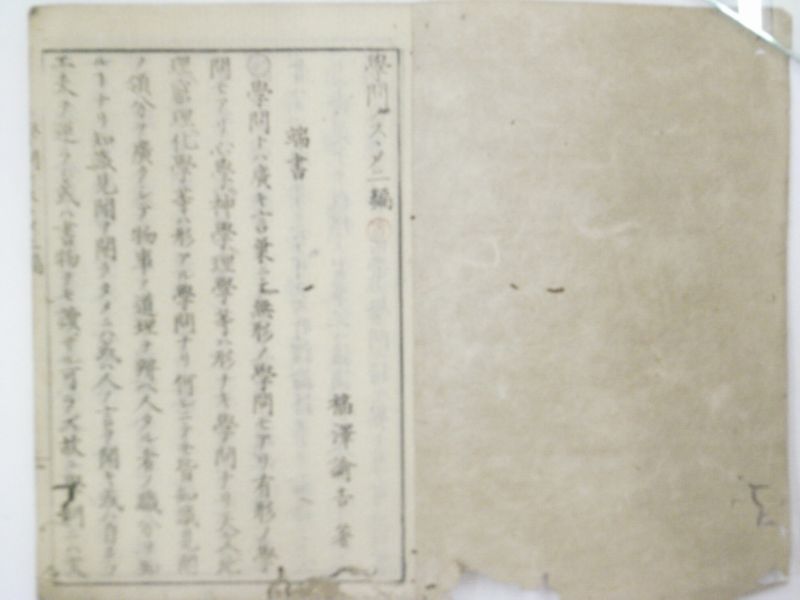 學問ノスヽメ二編
福澤諭吉著
端書
學問トハ廣キ言葉ニテ無形ノ學問モアリ有形ノ學
問モアリ心學神學理學等ハ形ナキ學問ナリ天文地
理窮理化學等ハ形アル學問ナリ何レニテモ皆知識見聞
ノ領分ヲ廣クシテ物事ノ道理ヲ辨ヘ人タル者ノ職分ヲ知
ルヿナリ知識見聞ヲ開クタメニハ或ハ人ノ言ヲ聞キ或ハ自カラ
工夫ヲ運ラシ或ハ書物ヲモ讀マザル可ラズ故ニ學問ニハ文